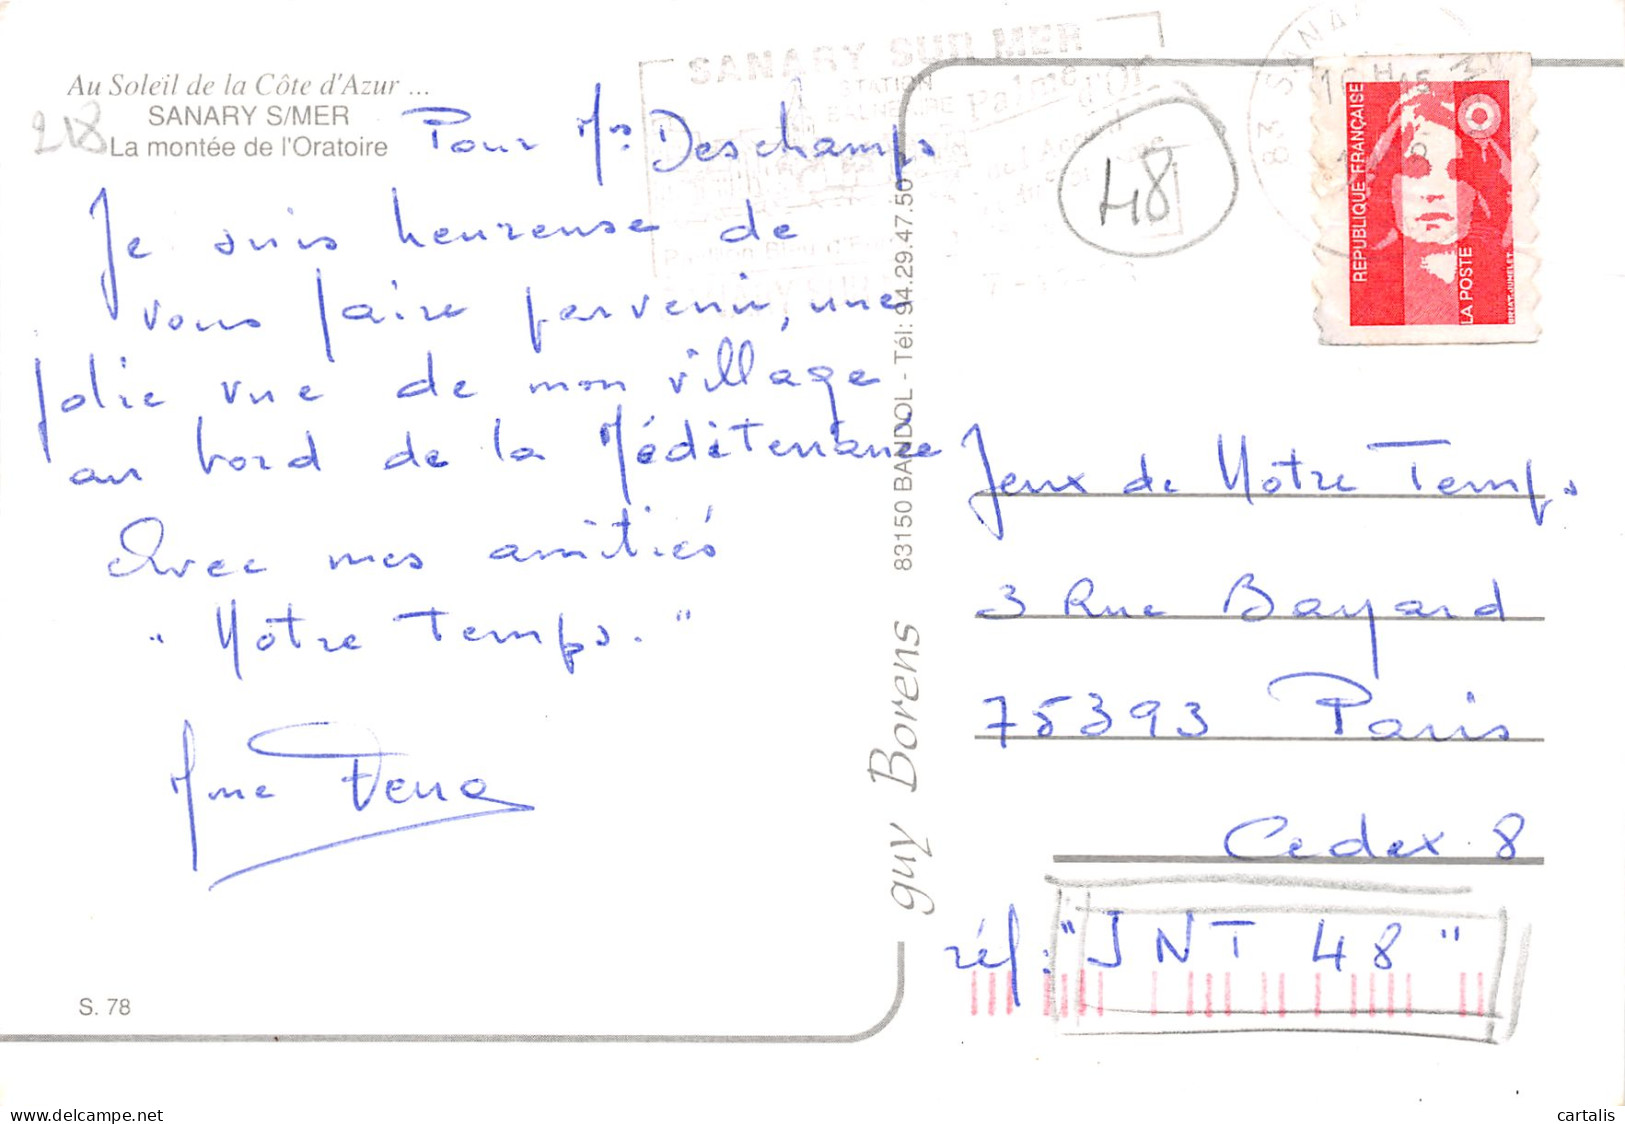 Au Soleil de la Côte d'Azur ...
SANARY S/MER
La montée de l'Oratoire
218
Pour Mr Deschamps
Je suis heureuse de
vous faire parvenir, une
jolie vue de mon village
au bord de la Méditerranée
Avec mes amitiés
"Notre Temps."
Mme
S. 78
guy Borens 83150 BANDOL - Tél: 94.29.47.50
SANARY SUR MER
STATION
BALNEAIRE
Palme
d'Or
83 SANA
48
REPUBLIQUE FRANÇAISE
LA POSTE
BRIAT-JUMELET
Jeux de Notre Temps
3 Rue Bayard
75393 Paris
Cedex 8
réf: "JNT 48"
cartalis